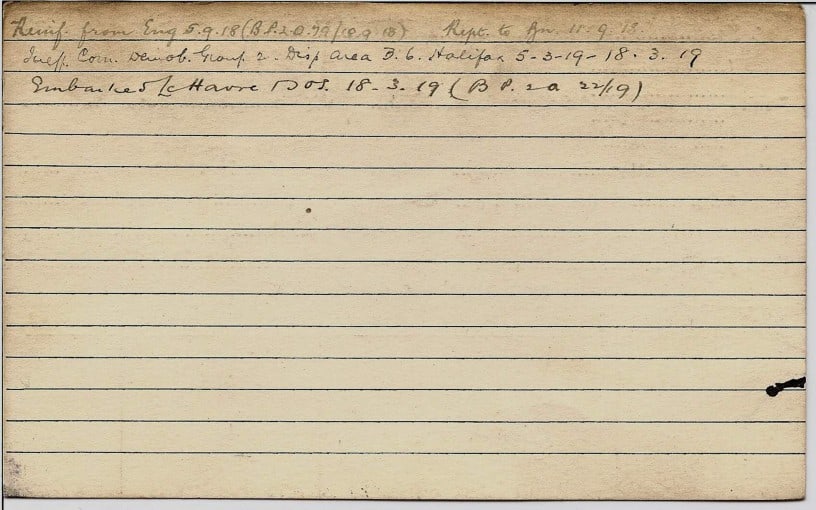 Reinf. from Eng 5.9.18 (B P.2.O.79/18.9.18) Rept. to Bn. 11.9.18
Com. Demob. Group 2. Disp area D. 6. Halifax 5-3-19-18.3.19
Embarked Le Havre 18-3.19 (B P. 2 O 22/19)